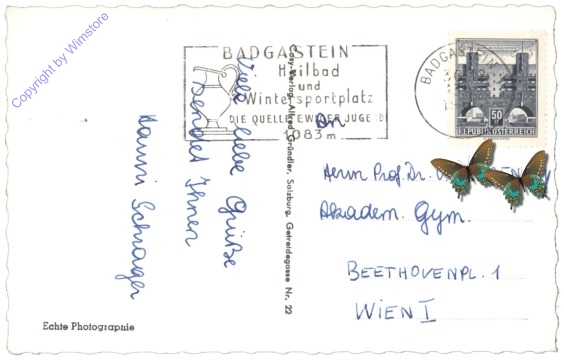 Copyright by Wimstore
BADGASTEIN
Heilbad
und
Wintersportplatz
DIE QUELLE EWIGER JUGEND
1083 m
BADGASTEIN
50
REPUBLIK ÖSTERREICH
Viele liebe Grüße
sendet Ihnen
Hanni Schrager
Cosy-Verlag, Alfred Gründler, Salzburg, Getreidegasse Nr. 22
An
Herrn Prof. Dr.
Akadem. Gym.
BEETHOVENPL. 1
WIEN I
Echte Photographie